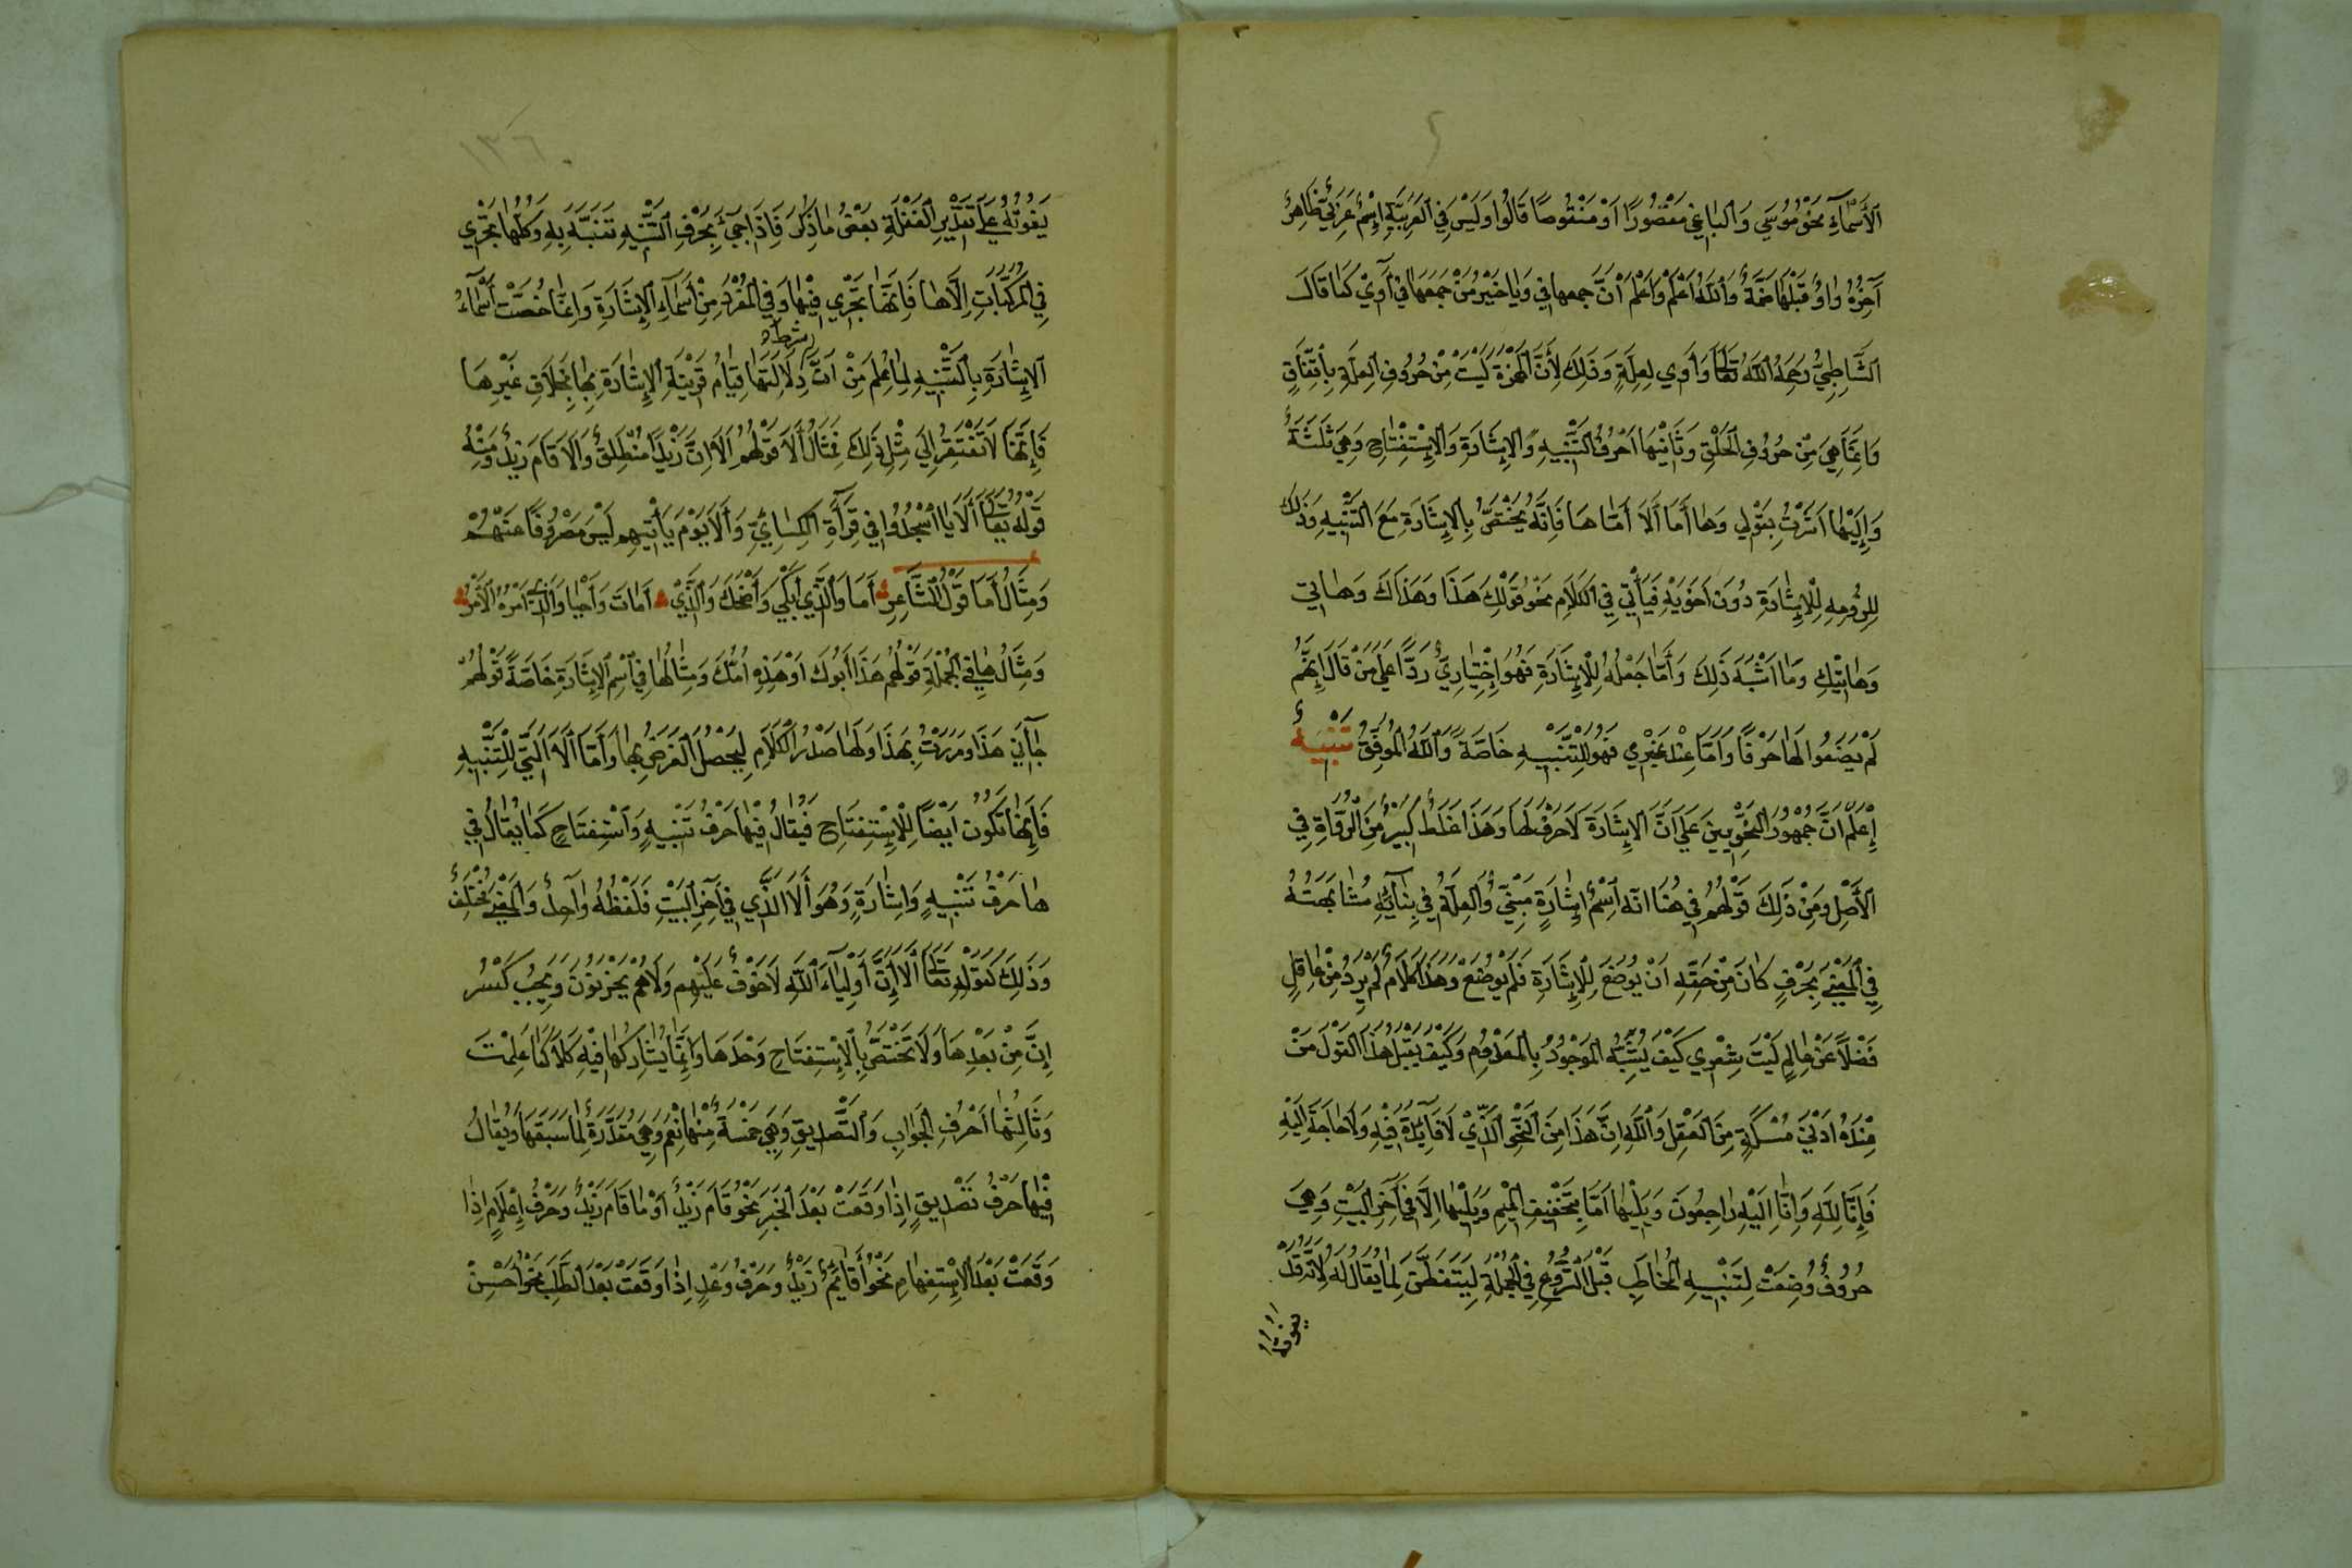 الْأَسْمَآءِ نَحْوُ مُوسَي وَالْبَاغِي مَقْصُورًا أَوْ مَنْقُوصًا قَالُوا وَلَيْسَ فِي الْعَرَبِيَّةِ إِسْمٌ عَرَبِيٌّ ظَاهِرٌ
آخِرُهُ وَاوٌ قَبْلَهَا ضَمَّةٌ وَاللَّهُ أَعْلَمُ وَاعْلَمْ أَنَّ جمعها في وَايَا خَيْرٌ مِنْ جَمْعِهَا فِي آوِيْ كَمَا قَالَ
الشَّاطِبِيُّ رَحِمَهُ اللَّهُ تَعَالَى وَآوِي لِعِلَّةٍ وَذَلِكَ لِأَنَّ الْهَمْزَةَ لَيْسَتْ مِنْ حُرُوفِ الْعِلَّةِ بِاتِّفَاقٍ
وَإِنَّمَا هِيَ مِنْ حُرُوفِ الْحَلْقِ وَثَانِيْهَا أَحْرُفُ التَّنْبِيهِ وَالْإِشَارَةِ وَالْإِسْتِفْتَاحِ وَهِيَ ثَلَثَةٌ
وَإِلَيْهَا أَشَرْتُ بِقَوْلِي وَهَا أَمَا أَلَا أَمَّا هَا فَإِنَّهُ يَخْتَصُّ بِالْإِشَارَةِ مَعَ التَّنْبِيهِ وَذَلِكَ
لِلُزُومِهِ لِلْإِشَارَةِ دُونَ أَخَوَيْهِ فَيَأْتِي فِي الْكَلَامِ نَحْوُ قَوْلِكَ هَذَا وَهَذَاكَ وَهَاتِي
وَهَاتِيْكِ وَمَا أَشْبَهَ ذَلِكَ وَأَمَّا جَعْلُهُ لِلْإِشَارَةِ فَهُوَ إِخْتِيَارِيٌّ رَدًّا عَلَي مَنْ قَالَ إِنَّهُمْ
لَمْ يَضَعُوا لَهَا حَرْفًا وَأَمَّا عِنْدَ غَيْرِي فَهُوَ لِلتَّنْبِيْهِ خَاصَّةً وَاللَّهُ الْمُوَفِّقُ تَنْبِيْهٌ
إِعْلَمْ أَنَّ جُمْهُورَ النَّحْوِيِّينَ عَلَي أَنَّ الْإِشَارَةَ لَا حَرْفَ لَهَا وَهَذَا غَلَطٌ كَبِيْرٌ مِنَ الرُّوَاةِ فِي
الْأَصْلِ وَمِنْ ذَلِكَ قَوْلُهُمْ فِي هُنَا انّه إِسْمُ إِشَارَةٍ مَبْنِيٌّ وَالْعِلَّةُ فِي بِنَائِهِ مُشَابَهَتُهُ
فِي الْمَعْنَي بِحَرْفٍ كَانَ مِنْ حَقِّهِ أَنْ يُوضَعَ لِلْإِشَارَةِ فَلَمْ يُوضَعْ وَهَذَا كَلَامٌ لَمْ يَرِدْ مِنْ عَاقِلٍ
فَضْلًا عَنْ عَالِمٍ لَيْتَ شِعْرِي كَيْفَ يُشَبَّهُ الْمَوْجُودُ بِالْمَعْدُومِ وَكَيْفَ يَقْبَلُ هَذَا الْقَوْلَ مَنْ
عِنْدَهُ أَدْنَي مُسْكَةٍ مِنَ الْعَقْلِ وَاللَّهِ إِنَّ هَذَا مِنَ النَّحْوِ الَّذِيْ لَا فَائِدَةَ فِيْهِ وَلَا حَاجَةَ إِلَيْهِ
فَإِنَّا لِلَّهِ وَإِنَّا إِلَيْهِ رَاجِعُونَ وَيَلِيْهَا أَمَا بِتَخْفِيفِ الْمِيْمِ وَيَلِيْهَا أَلَا فِي آخِرِ الْبَيْتِ وَهِيَ
حُرُوفٌ وُضِعَتْ لِتَنْبِيْهِ الْمُخَاطَبِ قَبْلَ الشُّرُوعِ فِي الْجُمْلَةِ لِيَتَفَطَّنَ لِمَا يُقَالُ لَهُ لِأَنَّهُ قَدْ
يفوته
١٣٦
يَفُوتُهُ عَلَي تَقْدِيرِ الْغَفْلَةِ بَعْضُ مَا ذُكِرَ فَإِذَا جِيْءَ بِحَرْفِ التَّنْبِيهِ تَنَبَّهَ بِهِ وَكُلُّهَا تَجْرِي
فِي الْمُرَكَّبَاتِ إِلَّا هَا فَإِنَّهَا تَجْرِي فِيْهَا وَفِي الْمُفْرَدِ مِنْ أَسْمَآءِ الْإِشَارَةِ وَإِنَّمَا خُصَّتْ أَسْمَآءُ
الْإِشَارَةِ بِالتَّنْبِيهِ لِمَا عُلِمَ مِنْ أَنَّ شرط دَلَالَتِهَا قِيَامُ قَرِيْنَةِ الْإِشَارَةِ بِهَا بِخِلَافِ غَيْرِهَا
فَإِنَّهَا لَا تَفْتَقِرُ إِلَي مِثْلِ ذَلِكَ فَمِثَالُ أَلَا قَوْلُهُمْ أَلَا إِنَّ زَيْدًا مُنْطَلِقٌ وَأَلَا قَامَ زَيْدٌ وَمِنْهُ
قَوْلُهُ تَعَالَى أَلَا يَا اسْجُدُوا فِي قِرَآءَةِ الْكِسَائِيِّ وَأَلَا يَوْمَ يَأْتِيهِم لَيْسَ مَصْرُوفًا عَنْهُمْ
وَمِثَالُ أَمَا قَوْلُ الشَّاعِرِ أَمَا وَالَّذِي أَبْكَي وَأَضْحَكَ وَالَّذِيْ أَمَاتَ وَأَحْيَا وَالَّذِي أَمْرُهُ الْأَمْرُ
وَمِثَالُ هَا فِي الْجُمْلَةِ قَوْلُهُمْ هَذَا أَبُوكَ أَوْ هَذِهِ أُمُّكَ وَمِثَالُهَا فِي اسْمِ الْإِشَارَةِ خَاصَّةً قَوْلُهُمْ
جَآءَنِي هَذَا وَمَرَرْتُ بِهَذَا وَلَهَا صَدْرُ الْكَلَامِ لِيَحْصُلَ الْغَرَضُ بِهَا وَأَمَّا أَلَا الَّتِي لِلتَّنْبِيهِ
فَإِنَّهَا تَكُونُ أَيْضًا لِلْإِسْتِفْتَاحِ فَيُقَالُ فِيْهَا حَرْفُ تَنْبِيهٍ وَاسْتِفْتَاحٍ كَمَا يُقَالُ فِي
هَا حَرْفُ تَنْبِيهٍ وَإِشَارَةٍ وَهُوَ أَلَا الَّذِي فِي آخِرِ الْبَيْتِ فَلَفْظُهُ وَاحِدٌ وَالْمَعْنَي مُخْتَلِفٌ
وَذَلِكَ كَقَوْلِهِ تَعَالَى أَلَا إِنَّ أَوْلِيَآءَ اللَّهِ لَا خَوْفٌ عَلَيْهِمْ وَلَا هُمْ يَحْزَنُونَ وَيَجِبُ كَسْرُ
إِنَّ مِنْ بَعْدِهَا وَلَا تَخْتَصُّ بِالْإِسْتِفْتَاحِ وَحْدَهَا وَإِنَّمَا يُشَارِكُهَا فِيْهِ كَلَّا كَمَا عَلِمْتَ
وَثَالِثُهَا أَحْرُفُ الْجَوَابِ وَالتَّصْدِيقِ وَهِيَ خَمْسَةٌ مِنْهَا نَعَمْ وَهِيَ مُقَدَّرَةٌ لِمَا سَبَقَهَا وَيُقَالُ
فِيْهَا حَرْفُ تَصْدِيقٍ إِذَا وَقَعَتْ بَعْدَ الْخَبَرِ نَحْوُ قَامَ زَيْدٌ أَوْ مَا قَامَ زَيْدٌ وَحَرْفُ إِعْلَامٍ إِذَا
وَقَعَتْ بَعْدَ الْإِسْتِفْهَامِ نَحْوُ أَقَائِمٌ زَيْدٌ وَحَرْفُ وَعْدٍ إِذَا وَقَعَتْ بَعْدَ الطَّلَبِ نَحْوُ أَحْسِنْ